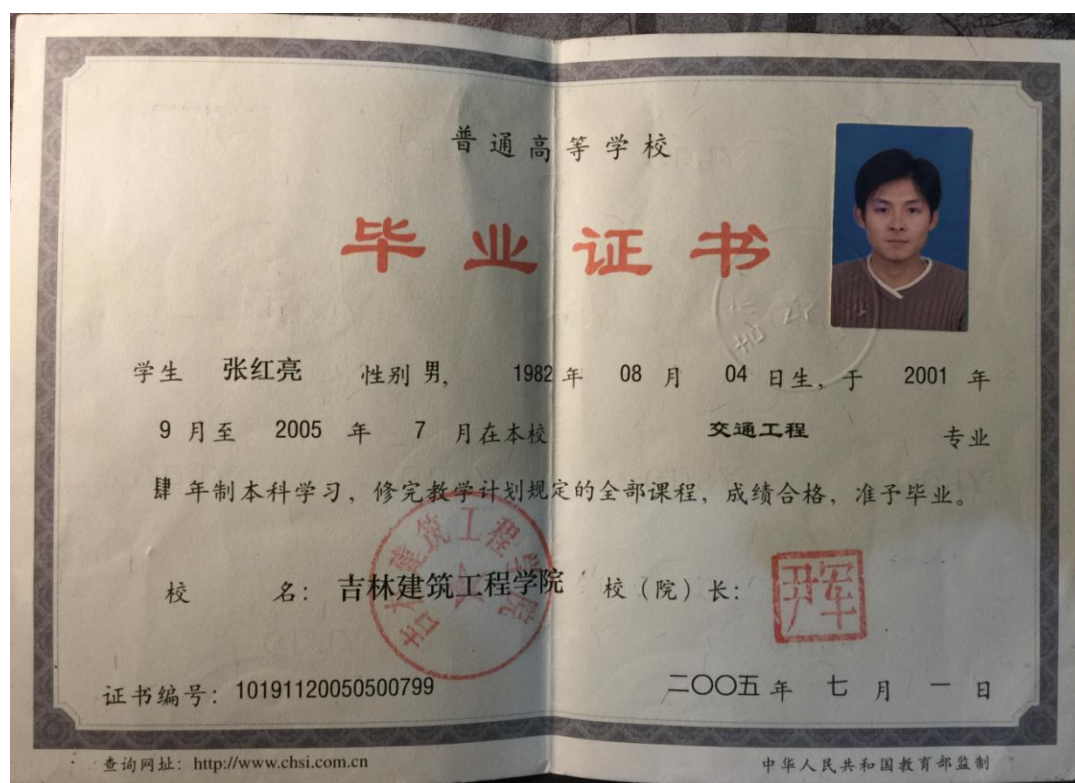 普通高等学校
毕业证书
学生 张红亮 性别 男, 1982 年 08 月 04 日生, 于 2001 年
9 月至 2005 年 7 月在本校 交通工程 专业
肆 年制本科学习, 修完教学计划规定的全部课程, 成绩合格, 准予毕业。
吉林建筑工程学院
校 名: 吉林建筑工程学院 校(院)长:
证书编号: 10191120050500799 二〇〇五 年 七 月 一 日
查询网址: http://www.chsi.com.cn 中华人民共和国教育部监制